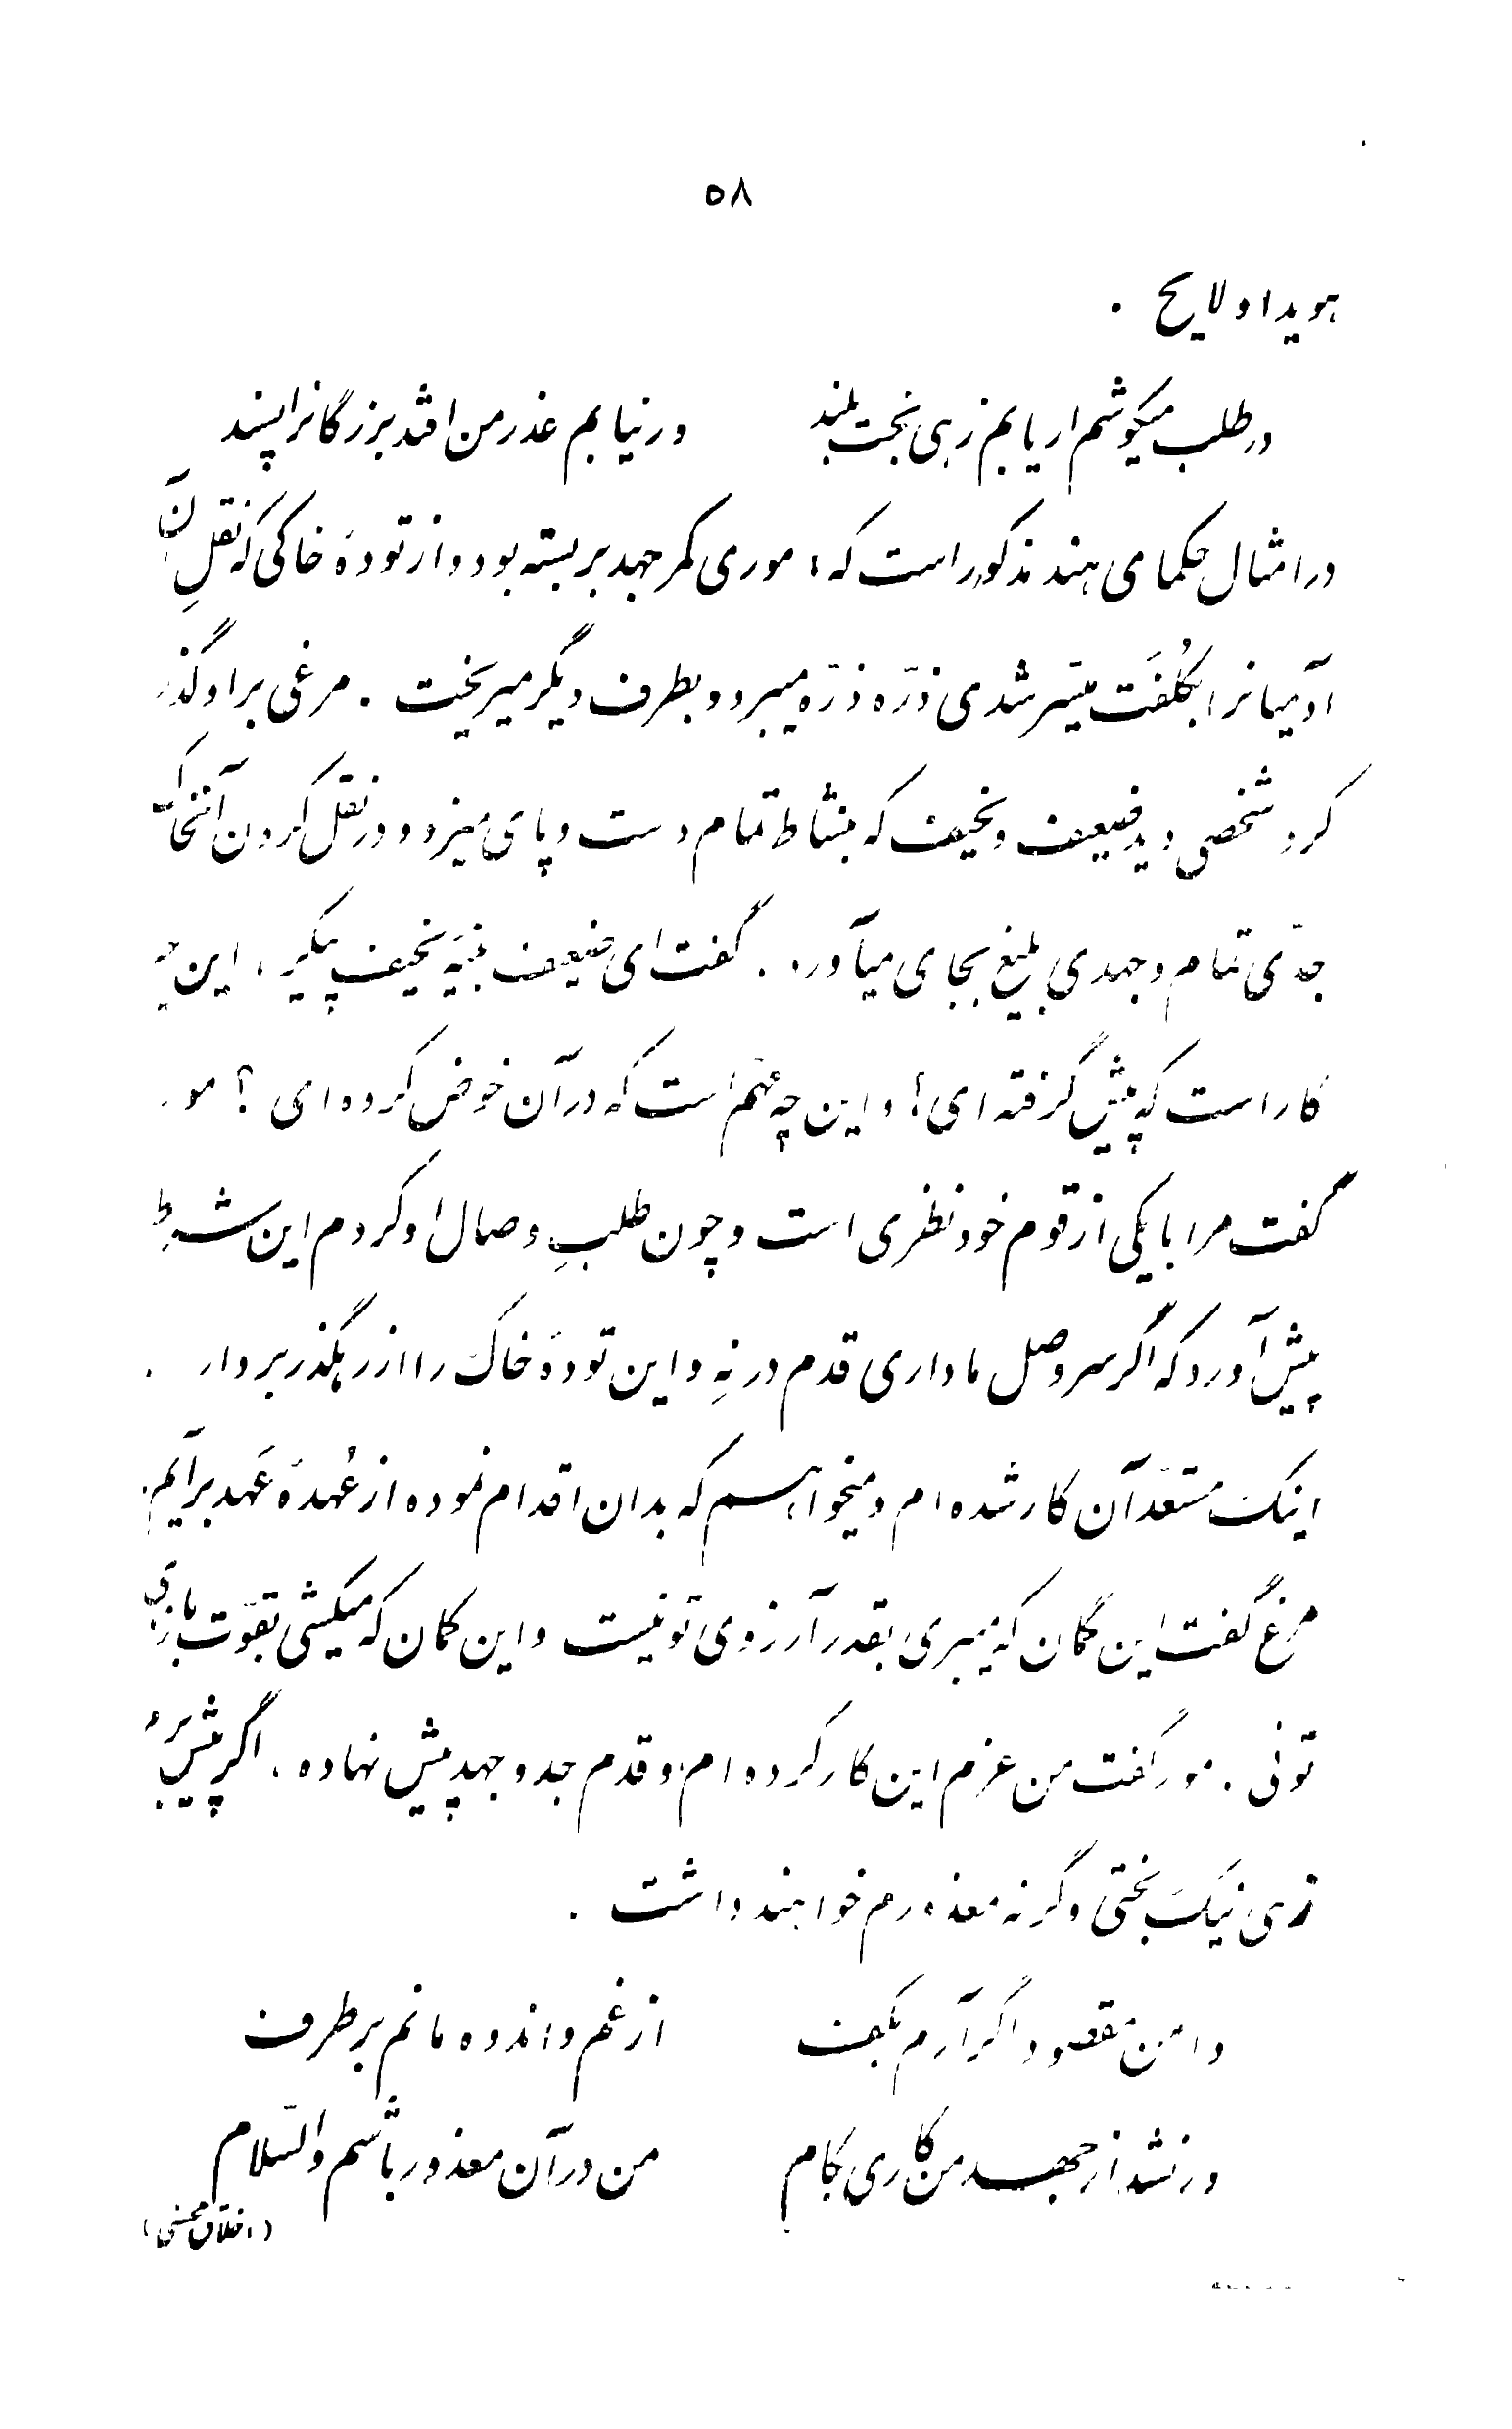 ۵۸
هویدا و لایح .
در طلب میکوشم ار یابم زهی بخت بلند    ور نیابم عذر من افتد بزرگانرا پسند
در امثال حکمای هند مذکور است که: موری کمر جهد بر بسته بود و از تودهٔ خاکی که نقلِ آن
آدمیانرا بکُلفَت میّسر شدی ذرّه ذرّه میبرد و بطرف دیگر میریخت . مرغی بر او گذر
کرد شخصی دید ضعیف و نحیف که بنشاط تمام دست و پای میزد و در نقل کردن آنخاک
جدّی تمام و جهدی بلیغ بجای میآورد . گفت ای ضعیف بنیَه نحیف پیکر، این چه
کار است که پیش گرفته ای؟ و این چه مهّم است که در آن خوض کرده ای ؟ مور
گفت مرا با یکی از قوم خود نظری است و چون طلبِ وصال او کردم این شرط
پیش آورد که اگر سر وصل ما داری قدم در نِه و این تودهٔ خاک را از رهگذر بردار .
اینک مستعدّ آن کار شده ام و میخواهم که بدان اقدام نموده از عُهدهٔ عَهد بر آیم.
مرغ گفت این گمان که میبری بقدر آرزوی تو نیست و این کمان که میکشی بقوّت بازوی
تو نی . مور گفت من عزم این کار کرده ام و قدم جد و جهد پیش نهاده . اگر پیش بَرم
زهی نیک بختی و گرنه معذورم خواهند داشت .
دامن مقصود اگر آرم بکف    از غم و اندوه مانم بر طرف
ور نشد از جهد من کاری بکام    من در آن معذور باشم والسّلام
(اخلاق محسنی)